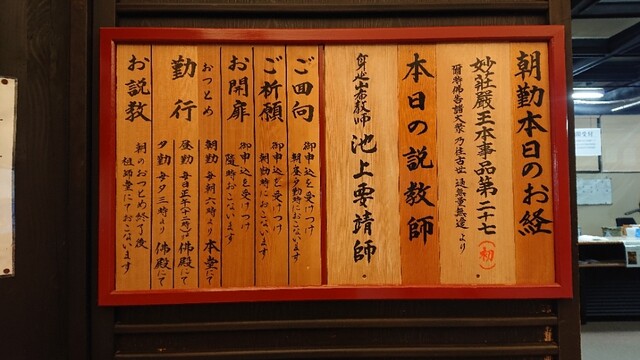 朝勤本日のお経
妙荘厳王本事品第二十七
(初)
爾時佛告諸大衆 乃往古世 過無量無邊 より
本日の説教師
身延山布教師 池上要靖師
ご回向
御申込を受けつけ
朝昼夕勤時におこないます
ご祈願
御申込を受けつけ
朝勤時におこないます
お開扉
御申込を受けつけ
随時おこないます
おつとめ
勤行
朝勤 毎朝六時より 本堂にて
昼勤 毎日正午(十二時)は 佛殿にて
夕勤 毎夕三時より 佛殿にて
お説教
朝のおつとめ終了後
祖師堂にておこないます